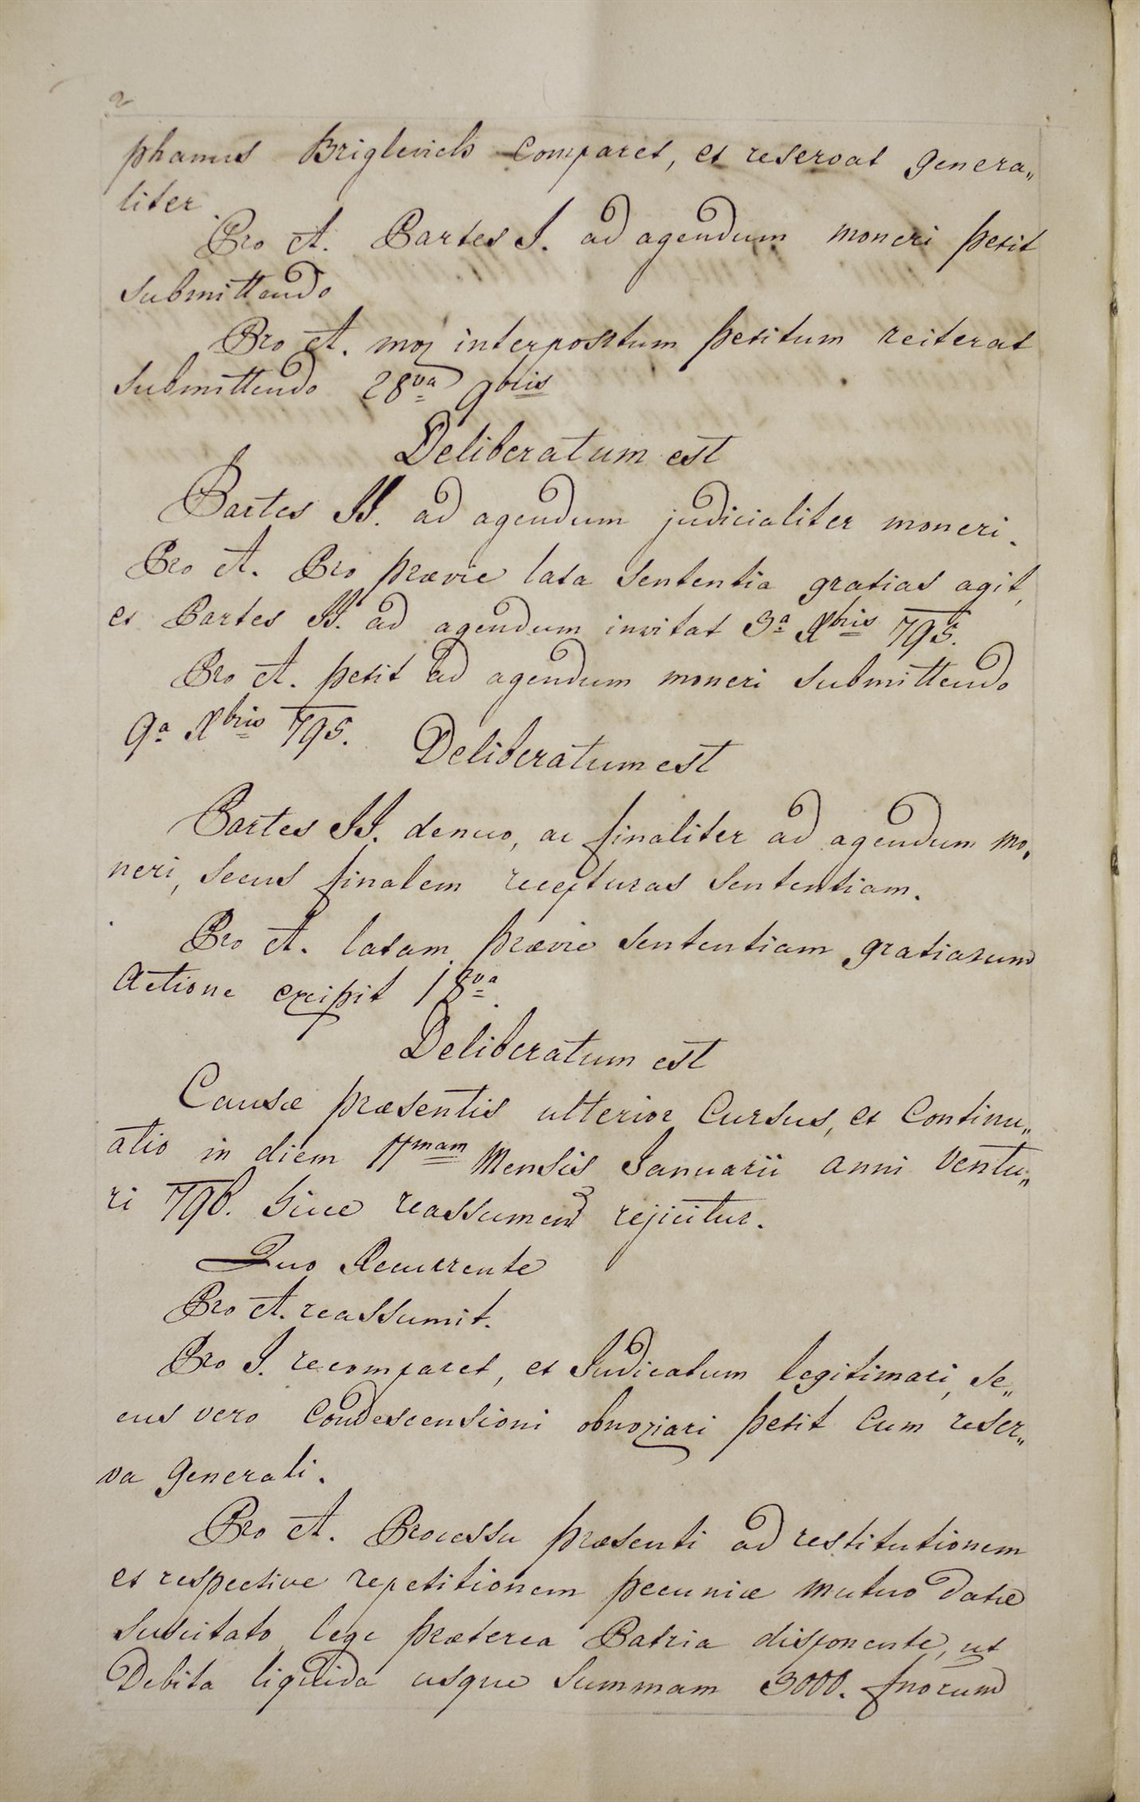 2
phanus Briglevich comparet, et reservat genera„
liter
Pro A. Partes I. ad agendum moneri petit
submittendo
Pro A. mox interpositum petitum reiterat
submittendo 28va 9bris
Deliberatum est
Partes II. ad agendum judicialiter moneri.
Pro A. Pro prævie lata sententia gratias agit,
et Partes II. ad agendum invitat 3a Xbris 795.
Pro A. petit ad agendum moneri submittendo
9a Xbris 795.
Deliberatum est
Partes II. denuo, ac finaliter ad agendum mo„
neri, secus finalem recepturas sententiam.
Pro A. latam prævie sententiam gratiarum
Actione excipit 18va.
Deliberatum est
Causæ præsentis ulterior Cursus, et Continu„
atio in diem 11mam Mensis Januarii anni ventu„
ri 796. sive reassumend rejicitur.
Quo Recurrente
Pro A. reassumit.
Pro I. recomparet, et Judicatum legitimari, se„
cus vero Condescensioni obnoxiari petit Cum reser„
va generali.
Pro A. Processu præsenti ad restitutionem
et respective repetitionem pecuniæ mutuo datæ
suscitato lege præterea Patria disponente, ut
Debita liquida usque summam 3000. fnorum